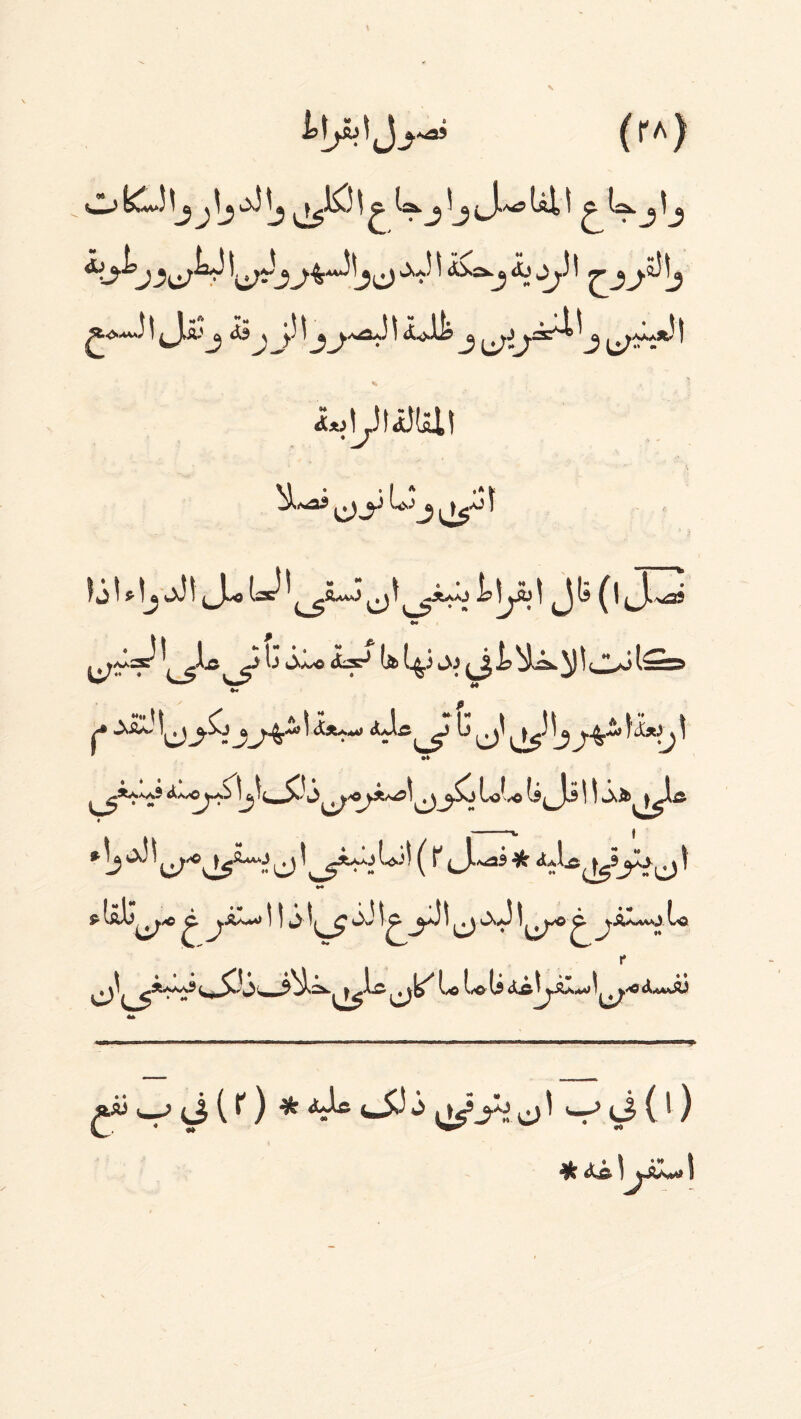 (٢٨) فصول ابقراط
واوجاع المفاصل واوجاع الكلى والدوار والسكتات
والقروح الردية وحكة البدن والسهر ولين البطن ورطوبة
العينين والمنخرين وظلمة البصر والزرقة وثقل السمع
المقالة الرابعة
اثنى وثمانون فصلا
فصل ١) قال ابقراط ينبغي ان تسقى الحامل الدواء اذا
كانت الاخلاط في بدنها هايجة منذ ياتي على الجنين
اربعة اشهر والى ان ياتي عليه سبعة اشهر ويكون التقدم
على هذا اقل فاما ما يكون اصغر من ذلك او اكبر منه فينبغي
ان يتوقى عليه * فصل ٢) انما ينبغي ان يسقى من الدواء
ما يستفرغ من البدن النوع الذي اذا استفرغ من تلقاء
نفسه من استفراغه فاما ما كان على خلاف ذلك فينبغي ان
(١) في ب ان يتوقى ذلك عليه * (٢) في ب نفع
استفراغه *